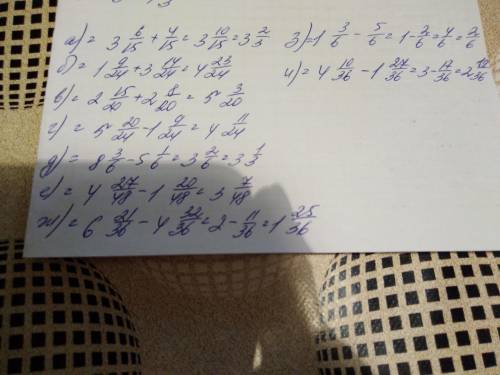 а) = 3 6/15 + 4/15 = 3 10/15 = 3 2/3
б) = 1 9/24 + 3 14/24 = 4 23/24
в) = 2 15/20 + 2 8/20 = 5 3/20
г) = 5 20/24 - 1 9/24 = 4 11/24
д) = 8 3/6 - 5 1/6 = 3 2/6 = 3 1/3
е) = 4 27/48 - 1 20/48 = 3 7/48
ж) = 6 21/36 - 4 32/36 = 2 - 11/36 = 1 25/36
з) = 1 3/6 - 5/6 = 1 - 2/6 = 4/6 = 2/6
и) = 4 10/36 - 1 27/36 = 3 - 17/36 = 2